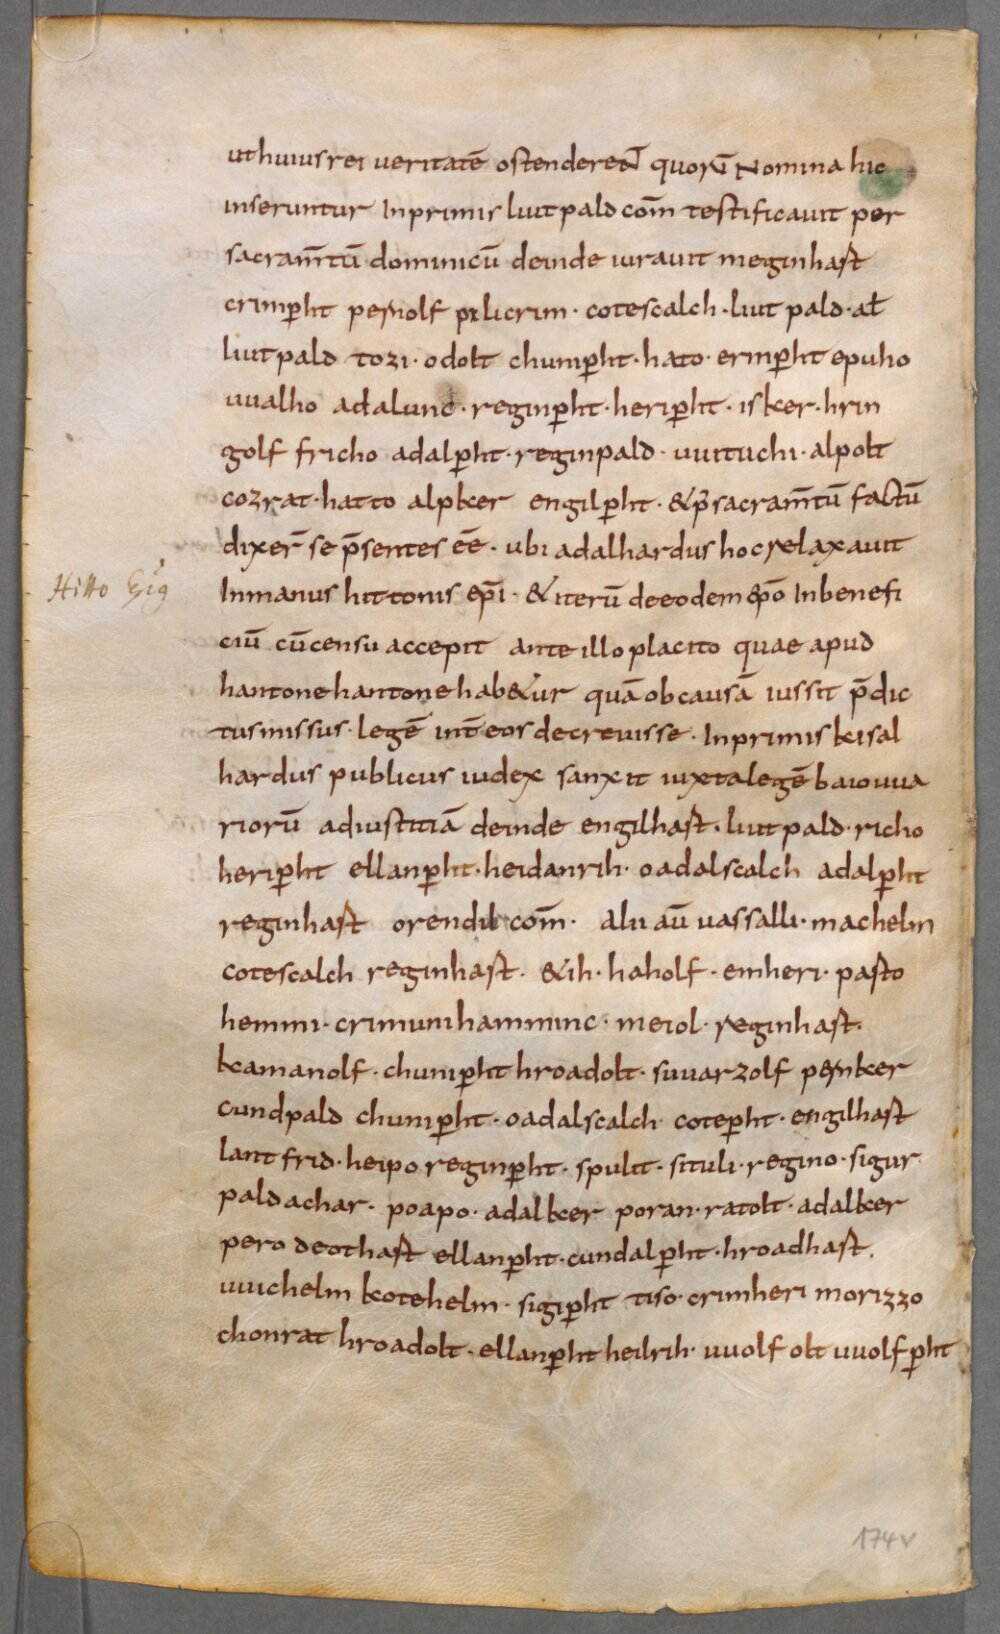 ut huius rei veritatē ostenderent̄ quorū Nomina hic
inseruntur Inprimis liutpald com̄ testificavit per
sacram̄tū dominicū deinde iuravit meginhast
crimp̱ht pernolf pilicrim · cotescalch · liutpald · al̄
liutpald tozi · odolt chunip̱ht · hato · ermp̱ht epuho
uualho adalunc · reginp̱ht · herip̱ht · isker · hrin
golf fricho adalp̱ht · reginpald · uuituchi · alpolt
cozrat · hatto alpker engilp̱ht · & p̄ sacram̄tū factū
dixer̄ se p̄sentes eē · ubi adalhardus hoc relaxavit
Hitto Ep̄s
In manus hittonis ep̄i · & iterū de eodem ep̄o In benefi
ciū cū censu accepit ante illo placito quae apud
hantone hantone hab&ur quā ob causā iussit p̄dic
tus missus · legē int̄ eos decrevisse · Inprimis kisal
hardus publicus iudex sanxit iuxta legē baiouua
riorū ad iustitiā deinde engilhast · liutpald · richo
herip̱ht ellanp̱ht · heidanrih · oadalscalch adalp̱ht
reginhast orendil com̄ · alii aū vassalli · machelm
cotescalch reginhast · &ih · haholf · emheri · pasto
hemmi · crimuni hamminc · meiol · reginhast ·
kamanolf · chunip̱ht hroadolt · suuarzolf pernker
cundpald chunip̱ht · oadalscalch cotep̱ht · engilhast
lantfrid · heipo reginp̱ht · spulit · situli · regino · sigur
paldachar · poapo · adalker poran · ratolt · adalker
pero deothast ellanp̱ht · cundalp̱ht · hroadhast ·
uuichelm kotehelm · sigip̱ht tiso · crimheri morizzo
chonrat hroadolt · ellanp̱ht heilrih · uuolfolt uuolfp̱ht
174v